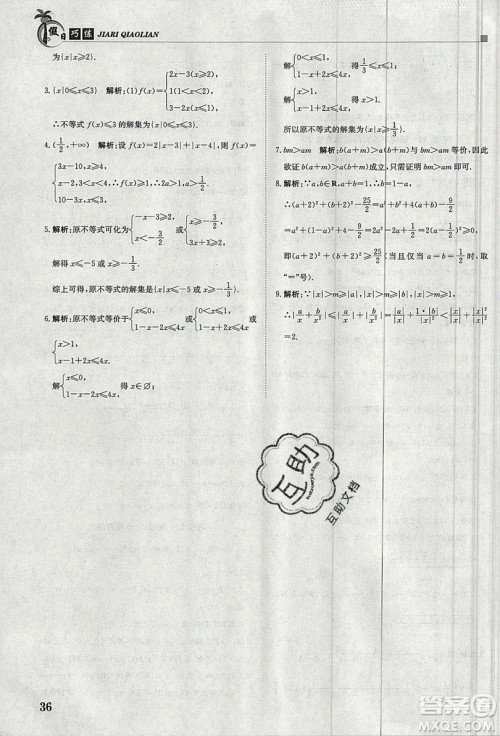 假日巧练 JIARI QIAOLIAN
为{x|x≥2}.
3. {x|0≤x≤3} 解析:(1)f(x)={2x-3(x≥2), 1(1<x<2), 3-2x(x≤1),
∴不等式 f(x)≤3的解集为{x|0≤x≤3}.
4. (1/2,+∞) 解析:设 f(x)=2|x-3|+|x-4|,则 f(x)=
{3x-10,x≥4, x-2,3<x<4, 10-3x,x≤3, ∴f(x)≥1,∴2a>1,a>1/2.
5. 解析:原不等式可化为{-x-3≥2, x<-3或{x-3≥2,
解得 x≤-5 或 x≥-1/3.
综上可得,原不等式的解集是{x|x≤-5 或 x≥-1/3}.
6. 解析:原不等式等价于{x≤0, 1-x-2x≤4x或{0<x≤1, 1-x+2x≤4x或
{x>1, x-1+2x≤4x.
解{x≤0, 1-x-2x≤4x 得 x∈∅;
解{0<x≤1, 1-x+2x≤4x 得 1/3≤x≤1;
解{x>1, x-1+2x≤4x 得 x>1.
所以原不等式的解集为{x|x≥1/3}.
7. bm>am
8. 解析:∵a,b∈R,且a+b=1,∴b=1-a,
∴(a+2)²+(b+2)²-25/2=a²+b²+4(a+b)-9/2
=a²+(1-a)²-1/2=2a²-2a+1/2=2(a-1/2)²≥0,
即(a+2)²+(b+2)²≥25/2(当且仅当 a=b=1/2时,取
“=”号).
9. 解析:∵|x|>m≥|a|,|x|>m≥|b|,|x|>m≥1,∴|x|²>|b|.
∴|a/x+b/x²|≤|a/x|+|b/x²|=|a|/|x|+|b|/|x|²<|x|/|x|+|x|²/|x|²
=2.
互助
互助文档
36
答案圈
MXQE.COM